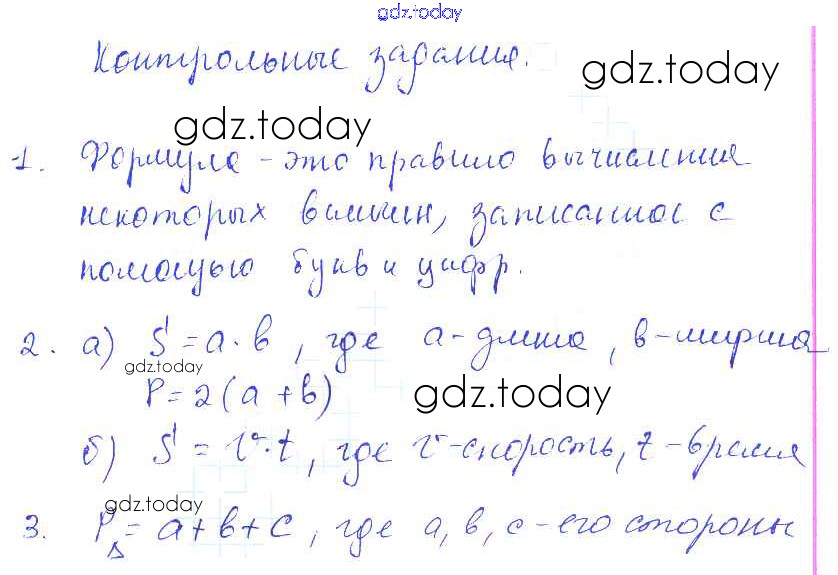 gdz.today
Контрольные задания.
gdz.today
gdz.today
1. Формула - это правило вычисления
некоторых величин, записанное с
помощью букв и цифр.
2. а) S = a · b, где a - длина, b - ширина
gdz.today
P = 2(a + b)
gdz.today
б) S = v · t, где v - скорость, t - время
gdz.today
3. P△ = a + b + c, где a, b, c - его стороны